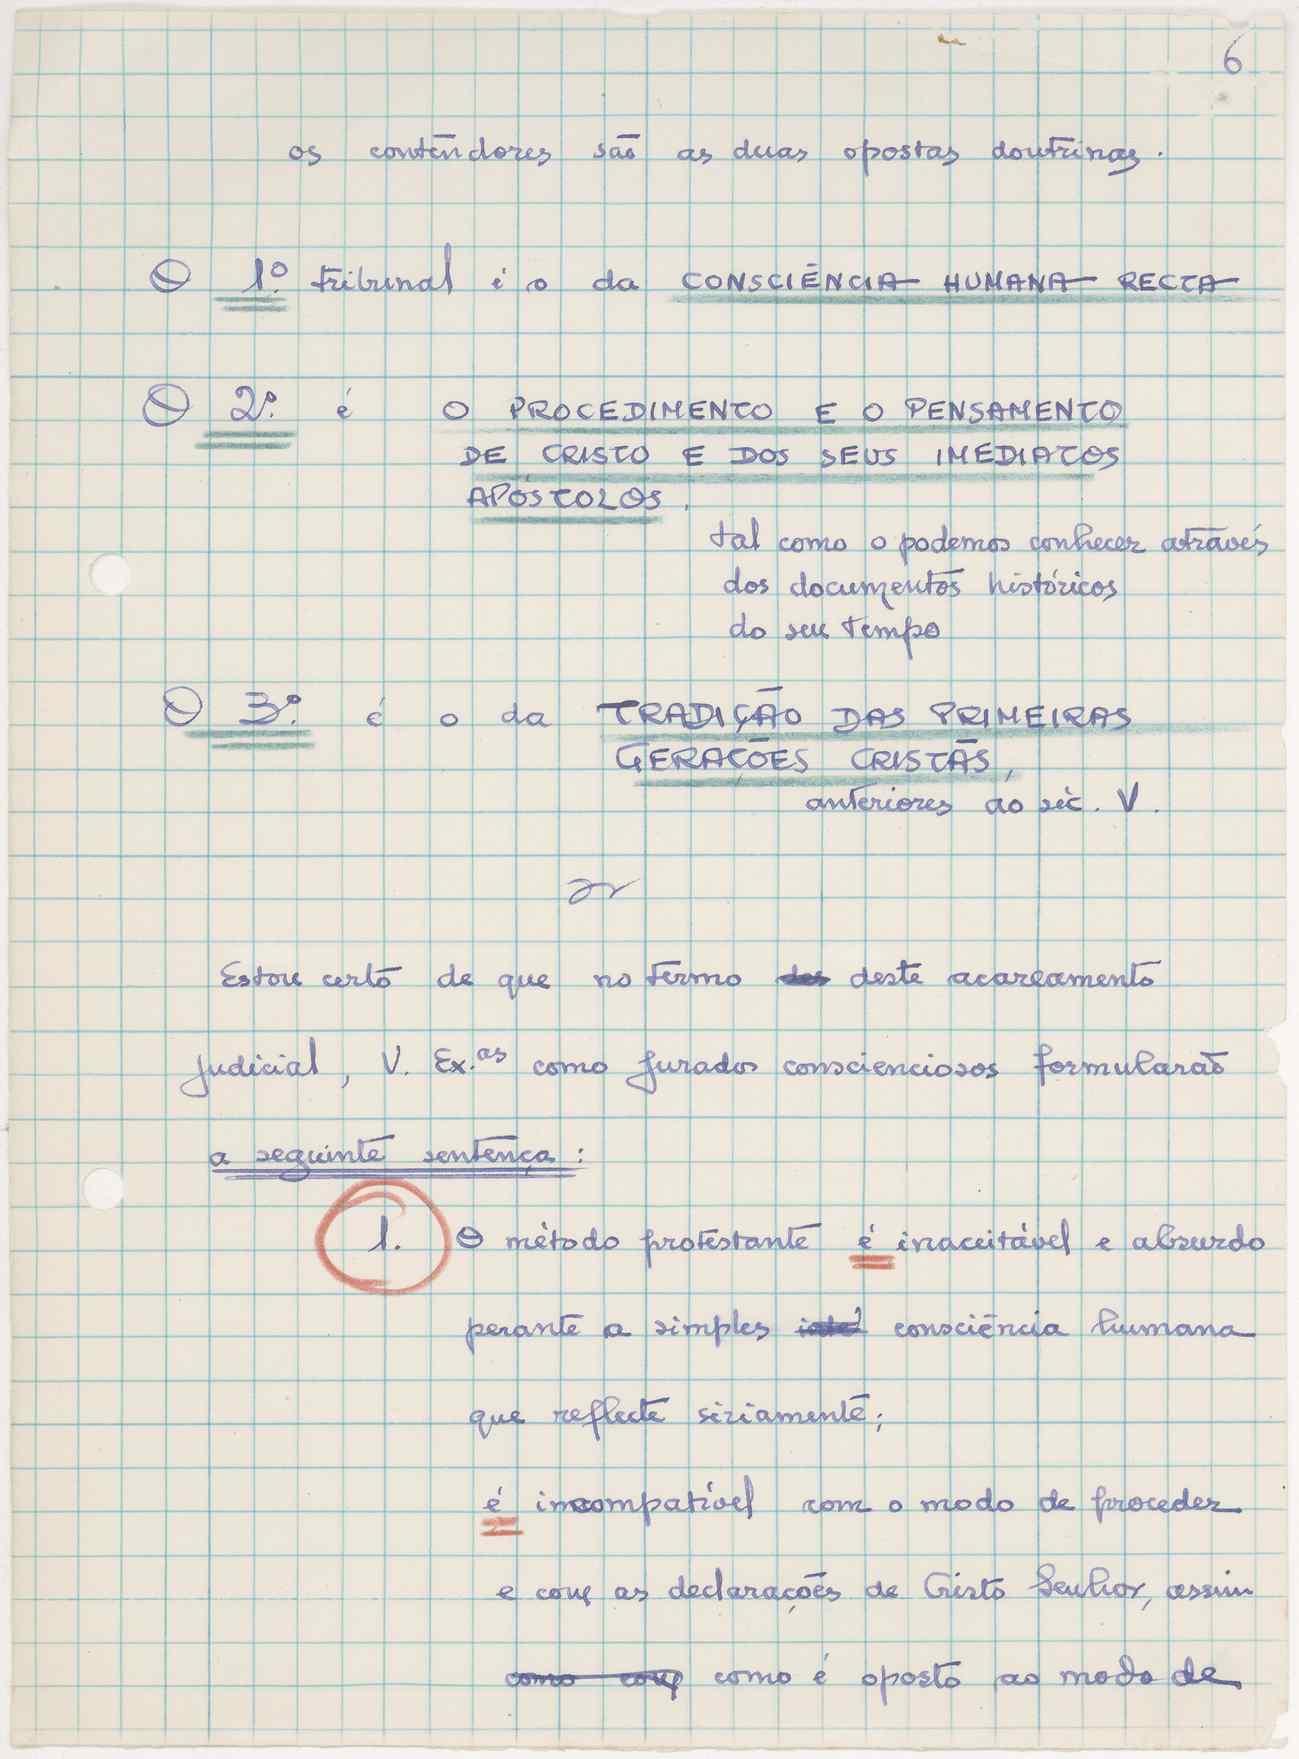 6
os contendores são as duas opostas doutrinas.
O 1º tribunal é o da CONSCIÊNCIA HUMANA RECTA
O 2º é O PROCEDIMENTO E O PENSAMENTO
DE CRISTO E DOS SEUS IMEDIATOS
APÓSTOLOS.
tal como o podemos conhecer através
dos documentos históricos
do seu tempo
O 3º é o da TRADIÇÃO DAS PRIMEIRAS
GERAÇÕES CRISTÃS,
anteriores ao séc. V.
Estou certo de que no termo des deste acareamento
judicial, V. Ex.as como jurados conscienciosos formularão
a seguinte sentença:
1. O método protestante é inaceitável e absurdo
perante a simples consciência humana
que reflecte sèriamente;
é incompatível com o modo de proceder
e com as declarações de Cristo Senhor, assim
como com como é oposto ao modo de